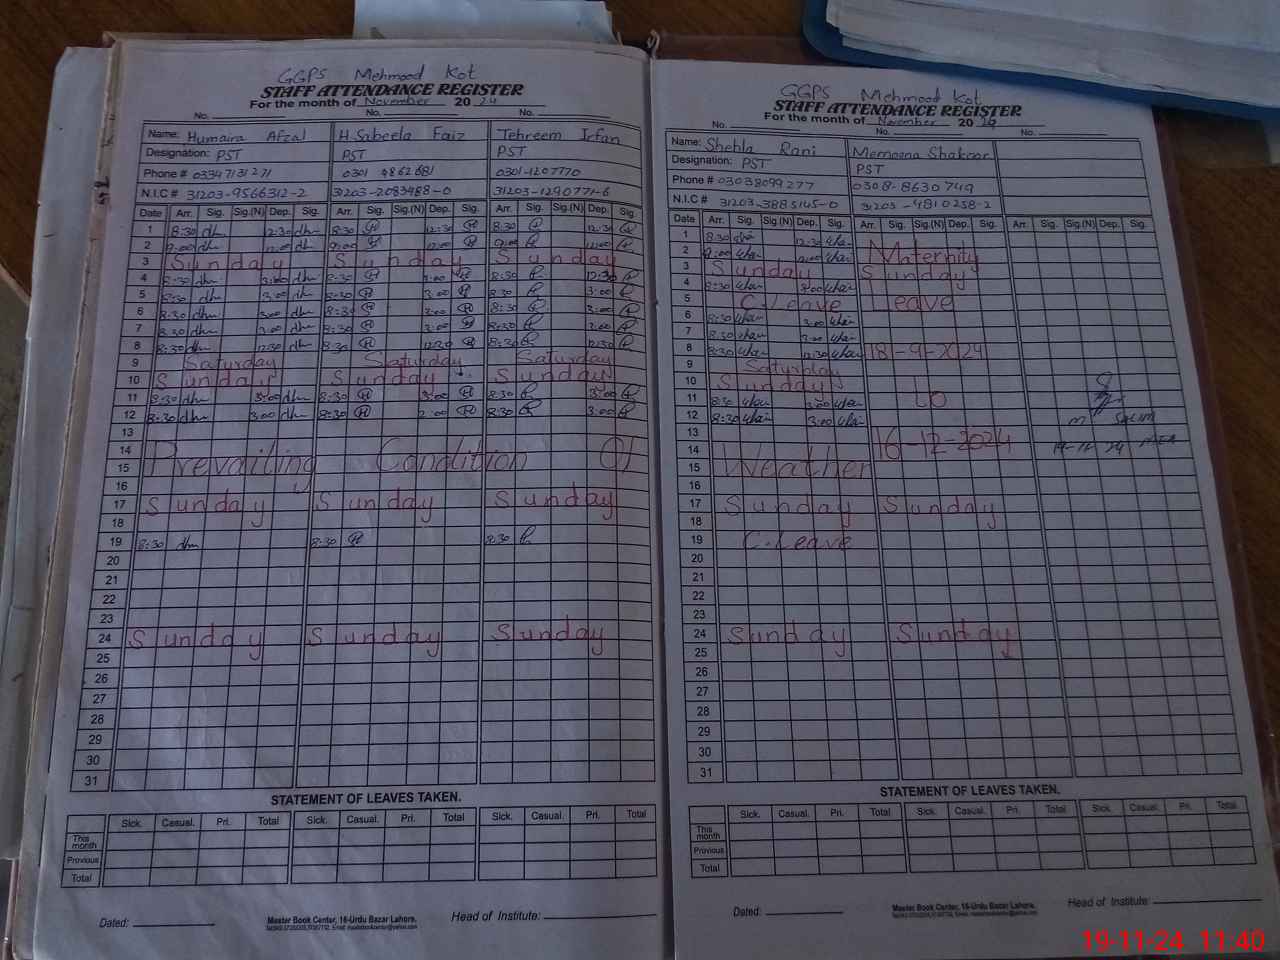 GGPS Mehmood Kot
STAFF ATTENDANCE REGISTER
For the month of November 2024
No. No. No.
Name: Humaira Afzal H. Sabeela Faiz Tehreem Irfan
Designation: PST PST PST
Phone # 03347131271 0301 9862681 0301-1207770
N.I.C # 31203-9566312-2 31203-2083488-0 31203-1290771-6
Date Arr. Sig. Sig.(N) Dep. Sig. Arr. Sig. Sig.(N) Dep. Sig. Arr. Sig. Sig.(N) Dep. Sig.
1 8:30 12:30 8:30 12:30 8:30 12:30
2 9:00 12:00 9:00 12:00 9:00 12:00
3 Sunday Sunday Sunday
4 8:30 3:00 8:30 3:00 8:30 12:30
5 8:30 3:00 8:30 3:00 8:30 3:00
6 8:30 3:00 8:30 3:00 8:30 3:00
7 8:30 3:00 8:30 3:00 8:30 3:00
8 8:30 12:30 8:30 12:30 8:30 12:30
9 Saturday Saturday Saturday
10 Sunday Sunday Sunday
11 8:30 3:00 8:30 3:00 8:30 3:00
12 8:30 3:00 8:30 3:00 8:30 3:00
13
14
15 Prevailing Condition Of
16
17 Sunday Sunday Sunday
18
19 8:30 8:30 8:30
20
21
22
23
24 Sunday Sunday Sunday
25
26
27
28
29
30
31
STATEMENT OF LEAVES TAKEN.
Sick. Casual. Pri. Total Sick. Casual. Pri. Total Sick. Casual. Pri. Total
This month
Previous
Total
Dated: Master Book Center, 16-Urdu Bazar Lahore. Head of Institute:
GGPS Mehmood Kot
STAFF ATTENDANCE REGISTER
For the month of November 2024
No. No. No.
Name: Shehla Rani Memoona Shakoor
Designation: PST PST
Phone # 03038099277 0308-8630749
N.I.C # 31203-3885145-0 31203-4810258-2
Date Arr. Sig. Sig.(N) Dep. Sig. Arr. Sig. Sig.(N) Dep. Sig. Arr. Sig. Sig.(N) Dep. Sig.
1 8:30 12:30
2 9:00 12:00 Maternity
3 Sunday Sunday
4 8:30 3:00
5 C.Leave Leave
6 8:30 3:00
7 8:30 3:00
8 8:30 12:30 18-9-2024
9 Saturday
10 Sunday
11 8:30 3:00 to
12 8:30 3:00 M Salim
13
14 16-12-2024 MEA
15 Weather
16
17 Sunday Sunday
18
19 C.Leave
20
21
22
23
24 Sunday Sunday
25
26
27
28
29
30
31
STATEMENT OF LEAVES TAKEN.
Sick. Casual. Pri. Total Sick. Casual. Pri. Total Sick. Casual. Pri. Total
This month
Previous
Total
Dated: Master Book Center, 16-Urdu Bazar Lahore. Head of Institute:
19-11-24 11:40